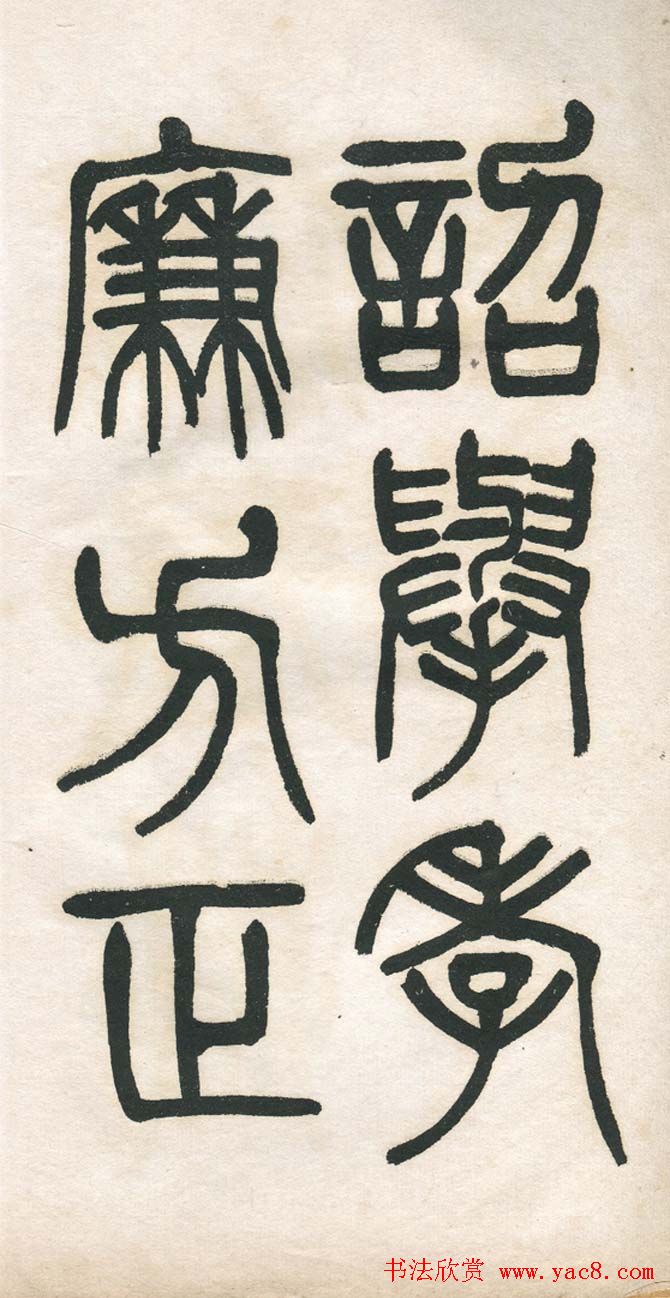 詔舉孝
廉方正
书法欣赏 www.yac8.com